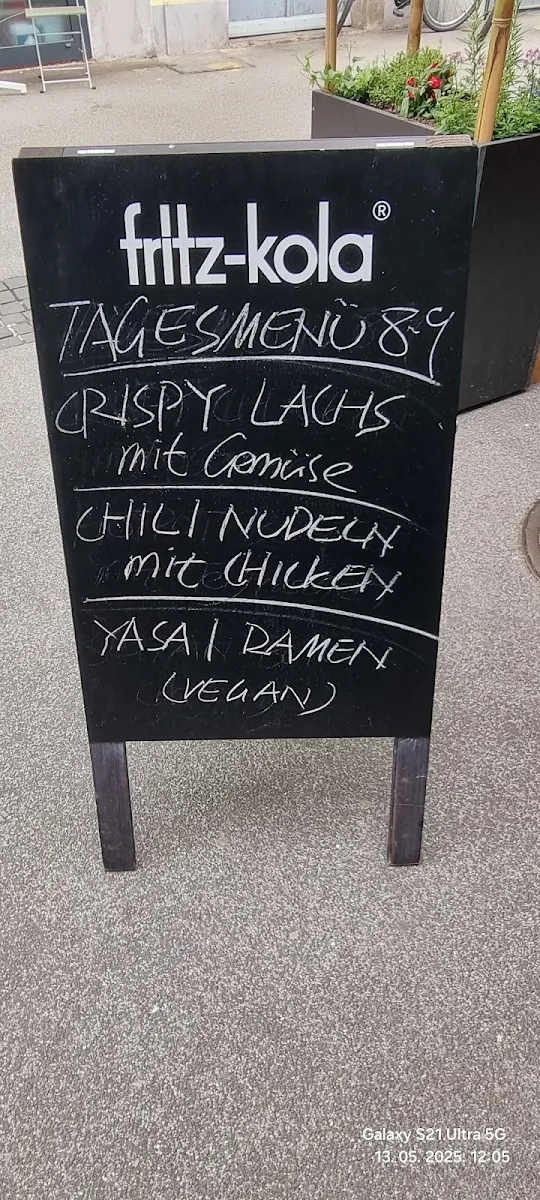 fritz-kola®
TAGESMENÜ 8-9
CRISPY LACHS
mit Gemüse
CHILI NUDELN
mit CHICKEN
YASAI RAMEN
(VEGAN)
Galaxy S21 Ultra 5G
13. 05. 2025. 12:05